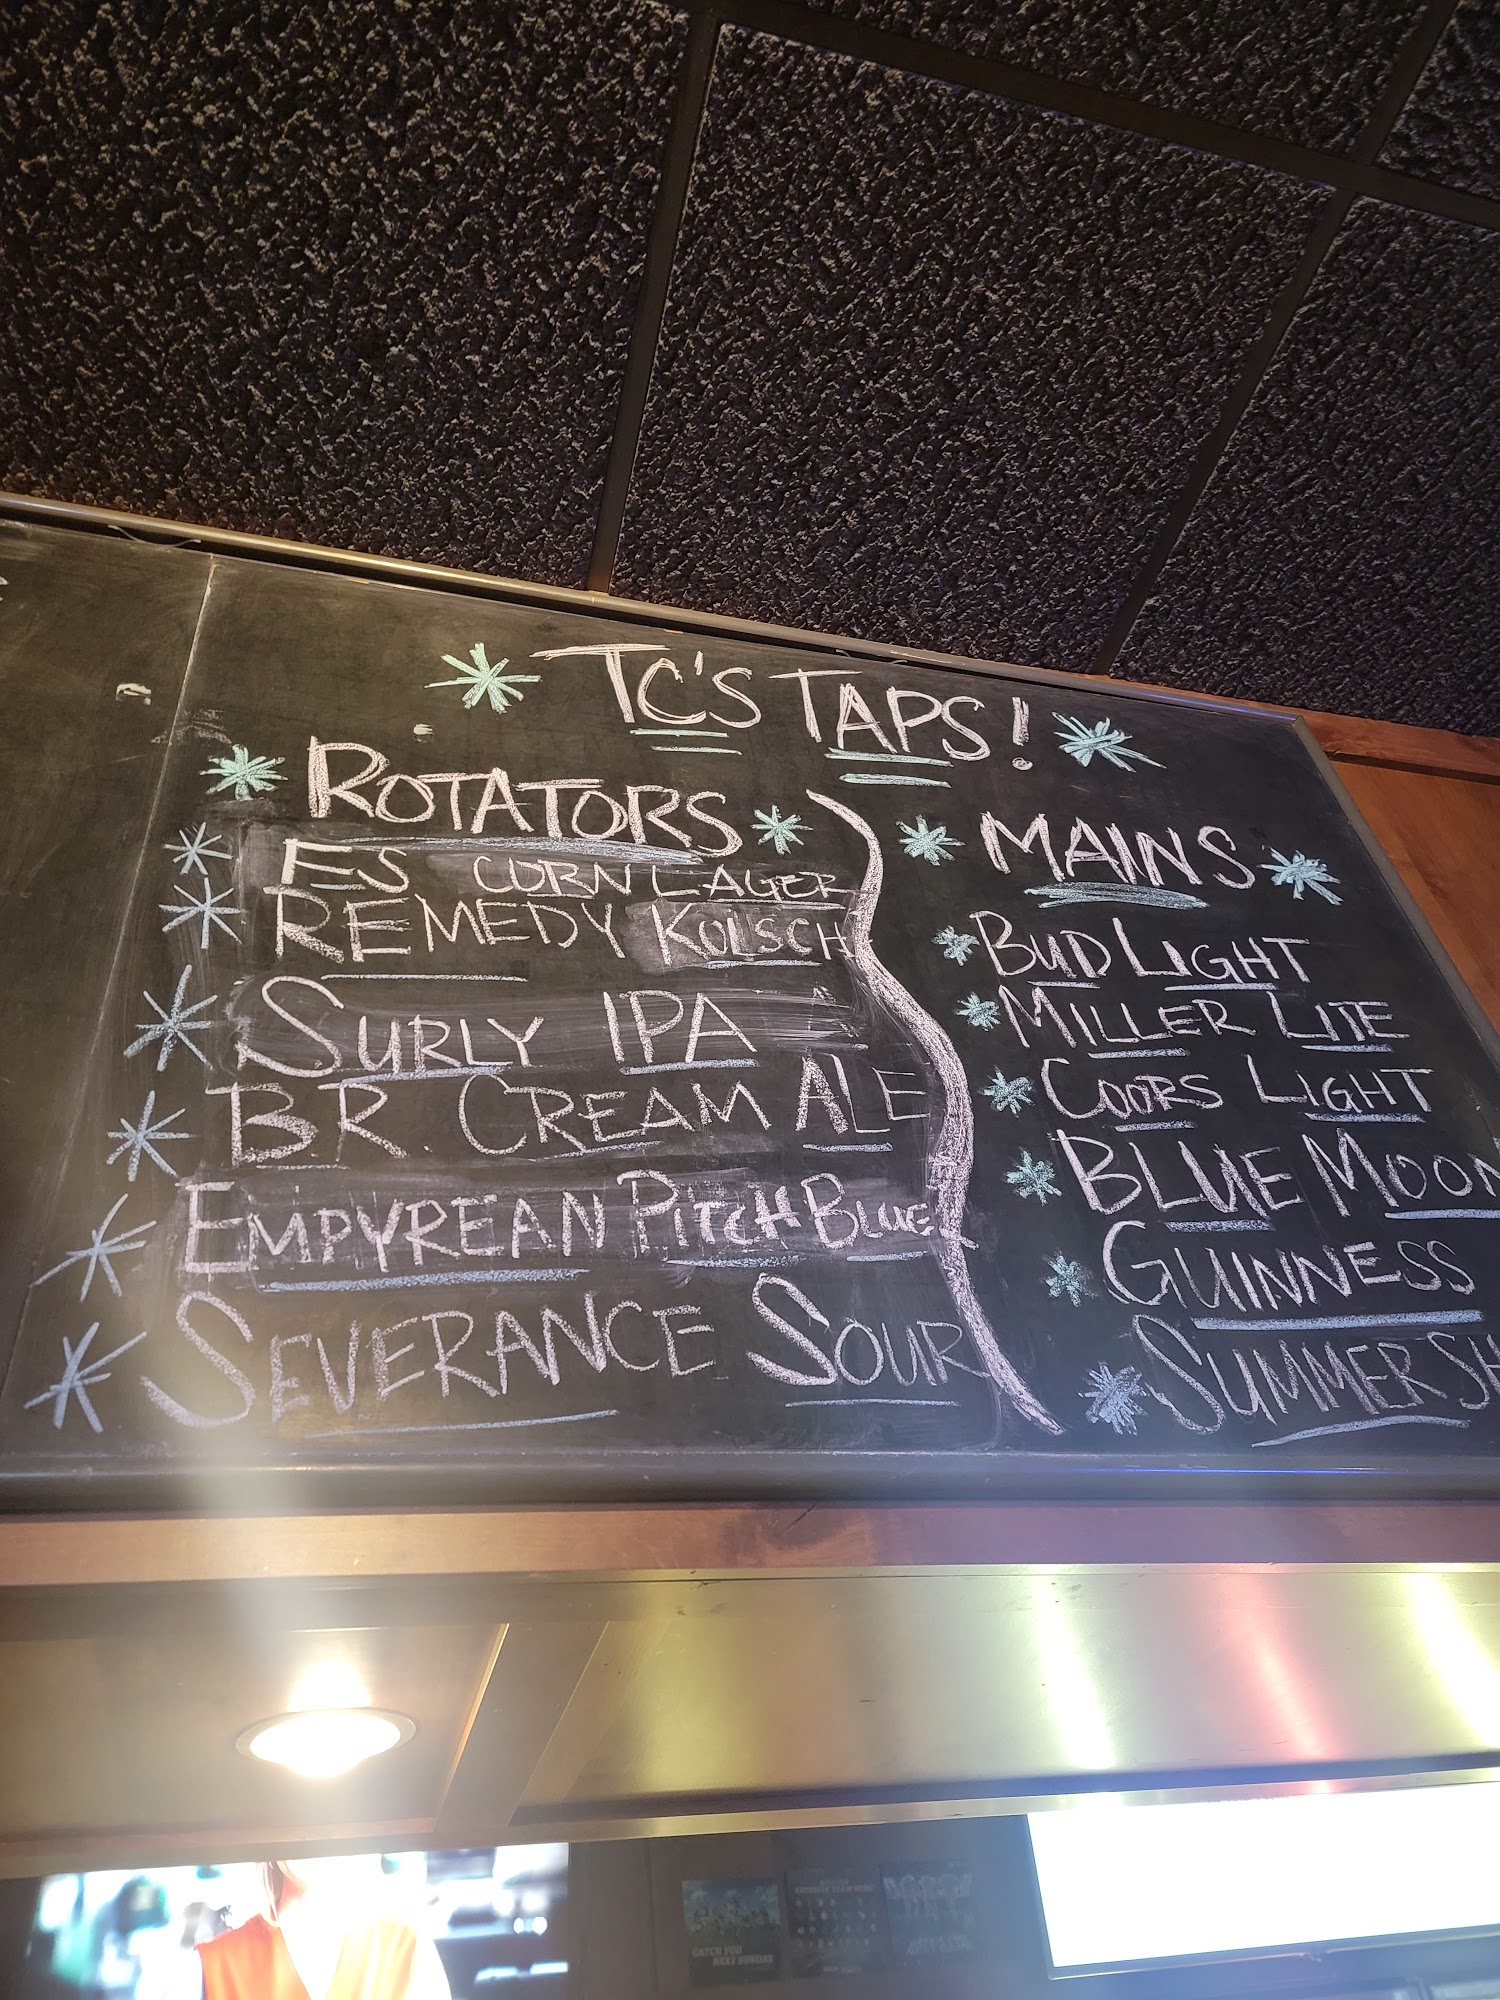 TC'S TAPS!
ROTATORS
ES CORN LAGER
REMEDY KOLSCH
SURLY IPA
B.R. CREAM ALE
EMPYREAN PITCH BLUE
SEVERANCE SOUR
MAINS
BUD LIGHT
MILLER LITE
COORS LIGHT
BLUE MOON
GUINNESS
SUMMER SH
CATCH YOU
NEXT SUNDAY